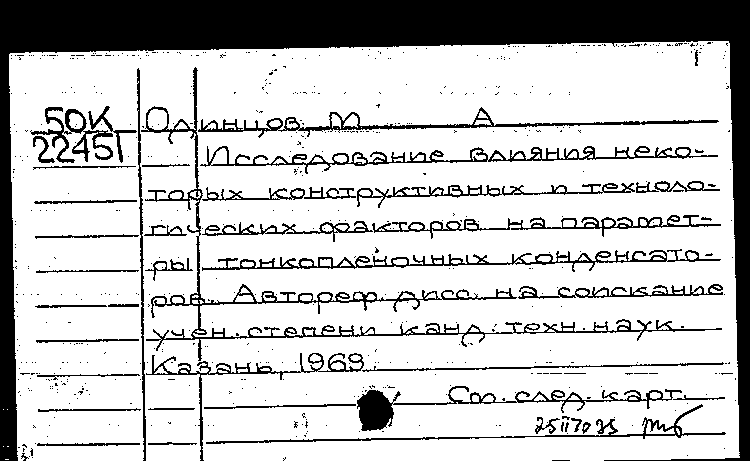 50К
22451
Одинцов, М А
Исследование влияния неко-
торых конструктивных и техноло-
гических факторов на парамет-
ры тонкопленочных конденсато-
ров. Автореф. дисс. на соискание
учен. степени канд. техн. наук.
Казань, 1969.
См. след. карт.